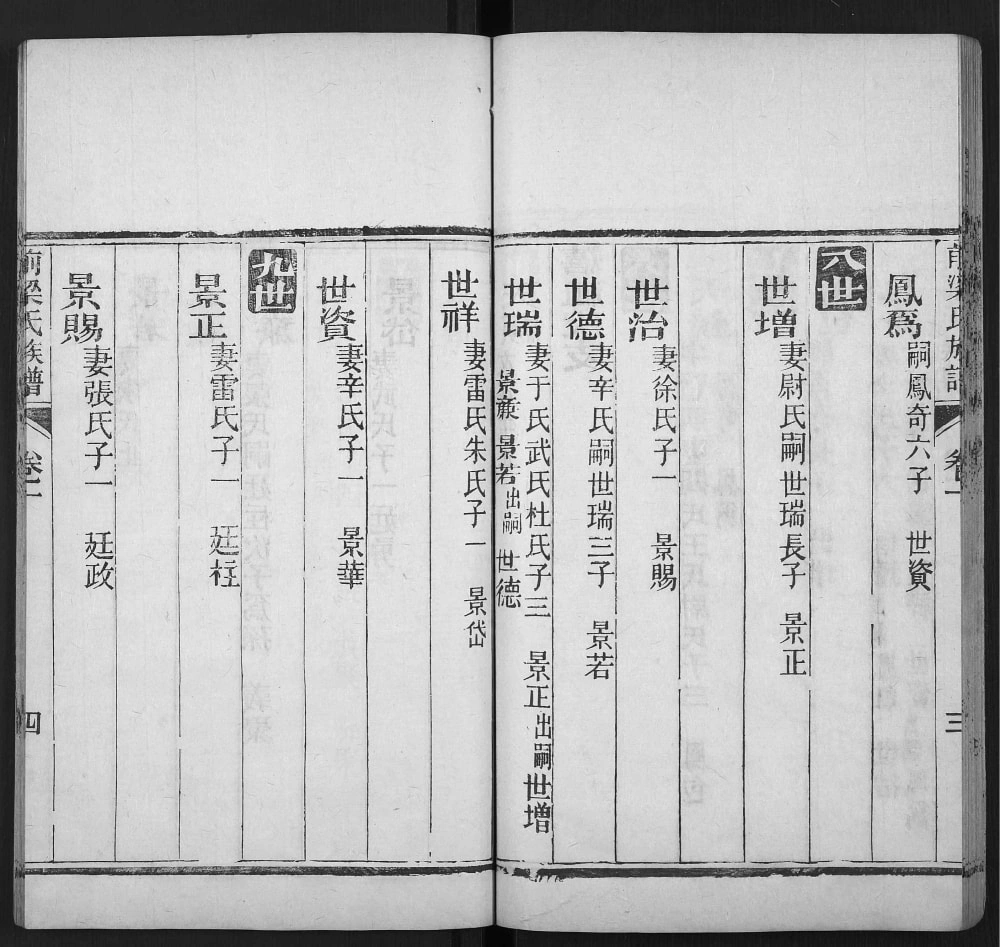 氏族譜
卷一
三
鳳爲 嗣鳳奇六子 世資
八世
世增 妻尉氏嗣世瑞長子 景正
世治 妻徐氏子一 景賜
世德 妻辛氏嗣世瑞三子 景若
世瑞 妻于氏武氏杜氏子三 景正出嗣世增
景 景若出嗣世德
世祥 妻雷氏朱氏子一 景岱
世資 妻辛氏子一 景華
九世
景正 妻雷氏子一 廷柱
景賜 妻張氏子一 廷政
梁氏族譜
卷一
四